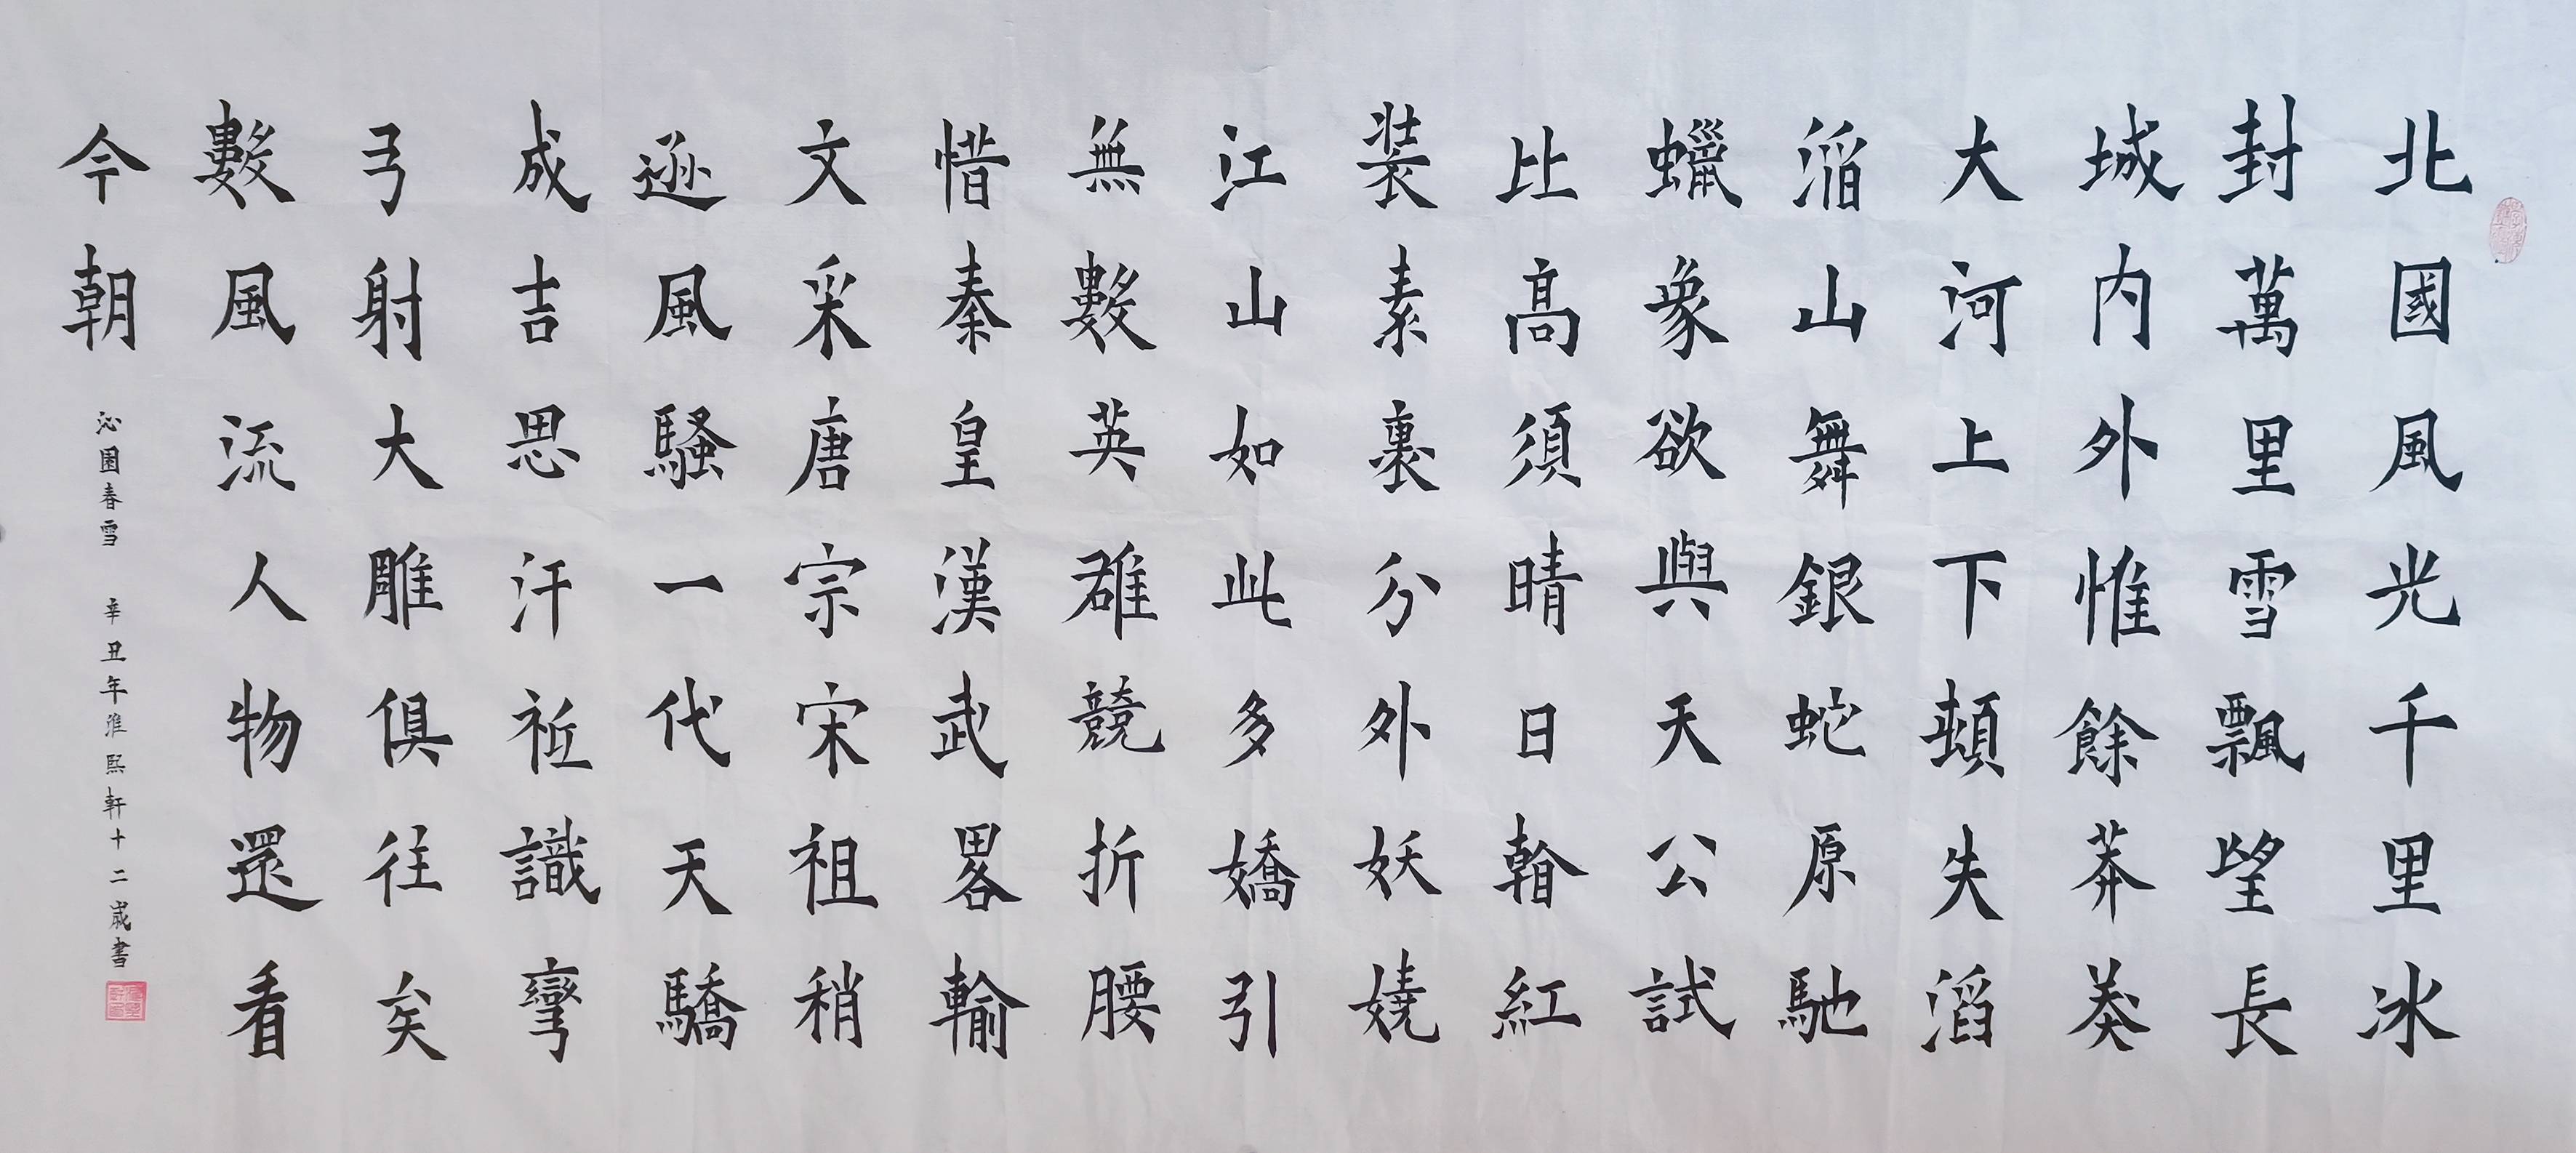 北國風光千里冰
封萬里雪飄望長
城内外惟餘莽莽
大河上下頓失滔
滔山舞銀蛇原馳
蠟象欲與天公試
比高須晴日看紅
装素裏分外妖嬈
江山如此多嬌引
無數英雄競折腰
惜秦皇漢武畧輸
文采唐宗宋祖稍
遜風騷一代天驕
成吉思汗祗識彎
弓射大雕俱往矣
數風流人物還看
今朝
沁園春雪 辛丑年淮熙軒十二歲書